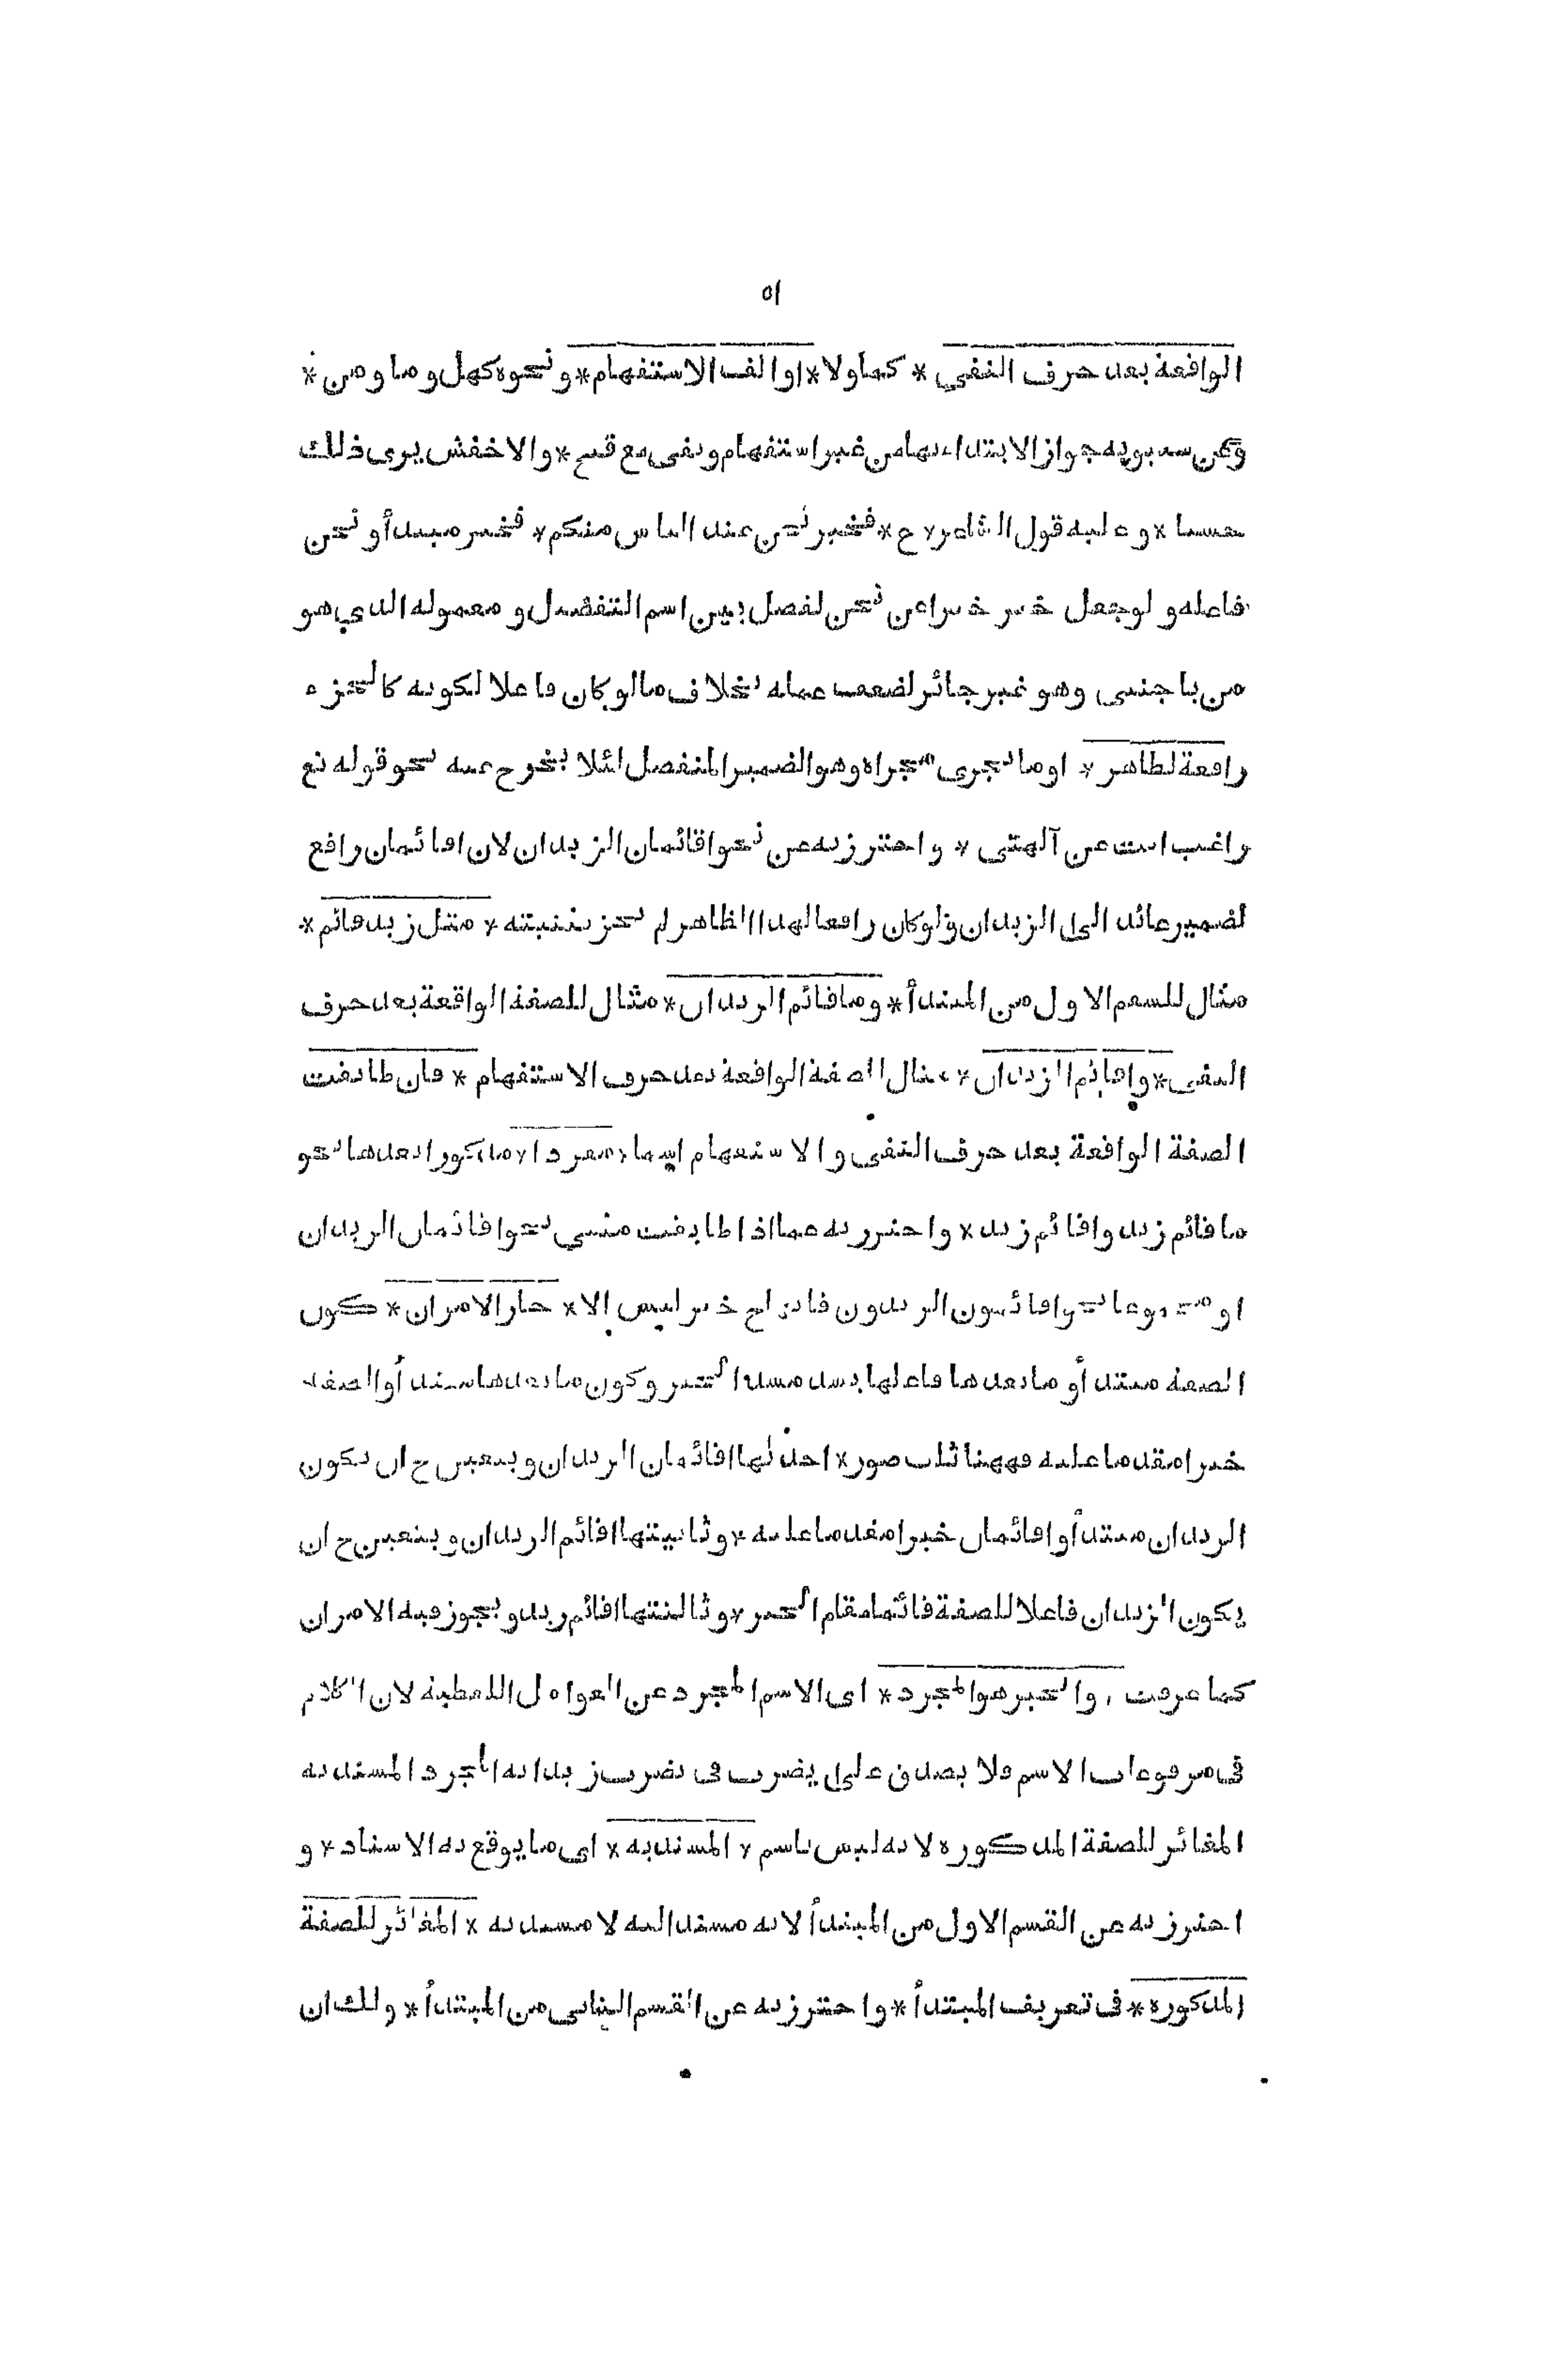 ٥١
الواقعة بعد حرف النفي * كما ولا * او الف الاستفهام * ونحوه كهل وما ومن *
وعن سيبويه جواز الابتداء بها من غير استفهام ونفى مع قبح * والاخفش يرى ذلك
حسنا * وعليه قول الشاعر * ع * فخير نحن عند الناس منكم * فخير مبتدأ ونحن
فاعله ولو جعل خير خبرا عن نحن لفصل بين اسم التفضيل ومعموله الذي هو
من باجنبى وهو غير جائز لضعف عمله بخلاف ما لو كان فاعلا لكونه كالجزء
رافعة لظاهر * او ما يجرى مجراه وهو الضمير المنفصل لئلا يخرج عنه نحو قوله تع
راغب انت عن آلهتى * واحترز به عن نحو اقائمان الزيدان لان اقائمان رافع
لضمير عائد الى الزيدان ولو كان رافعا لهذا الظاهر لم يجز تثنيته * مثل زيد قائم *
مثال للقسم الاول من المبتدأ * وما قائم الزيدان * مثال للصفة الواقعة بعد حرف
النفى * واقائم الزيدان * مثال الصفة الواقعة بعد حرف الاستفهام * فان طابقت
الصفة الواقعة بعد حرف النفى والاستفهام اسما * مفردا * مذكورا بعدها نحو
ما قائم زيد واقائم زيد * واحترز به عما اذا طابقت مثنى نحو اقائمان الزيدان
او مجموعا نحو اقائمون الزيدون فانها ح خبر ليس الا * جاز الامران * كون
الصفة مبتدأ وما بعدها فاعلها يسد مسد الخبر وكون ما بعدها مبتدأ والصفة
خبرا مقدما عليه فههنا ثلث صور * احدٰيها اقائمان الزيدان ويتعين ح ان يكون
الزيدان مبتدأ واقائمان خبرا مقدما عليه * وثانيتها اقائم الزيدان ويتعين ح ان
يكون الزيدان فاعلا للصفة قائما مقام الخبر * وثالثتها اقائم زيد ويجوز فيه الامران
كما عرفت * والخبر هو المجرد * اى الاسم المجرد عن العوامل اللفظية لان الكلام
فى مرفوعات الاسم فلا يصدق على يضرب فى يضرب زيد انه المجرد المسند به
المغائر للصفة المذكورة لانه ليس باسم * المسند به * اى ما يوقع به الاسناد * و
احترز به عن القسم الاول من المبتدأ لانه مسند اليه لا مسند به * المغائر للصفة
المذكورة * فى تعريف المبتدأ * واحترز به عن القسم الثانى من المبتدأ * ولك ان